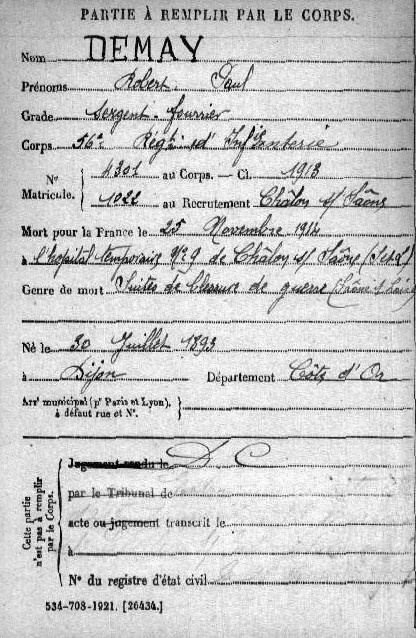 PARTIE À REMPLIR PAR LE CORPS.
Nom DEMAY
Prénoms Robert Paul
Grade Sergent-fourrier
Corps 56e Régt d'Infanterie
N° Matricule. { 4301 au Corps. — Cl. 1913
1022 au Recrutement Châlon s/ Saône
Mort pour la France le 25 Novembre 1914
à l'hôpital temporaire N° 9 de Châlon s/ Saône (S et L)
Genre de mort Suites de blessures de guerre (Saône & Loire)
Né le 30 Juillet 1893
à Dijon Département Côte d'Or
Arrt municipal (pr Paris et Lyon), à défaut rue et N°. }
Cette partie n'est pas à remplir par le Corps.
Jugement rendu le D. C
par le Tribunal de
acte ou jugement transcrit le
à
N° du registre d'état civil
534-708-1921. [26434.]